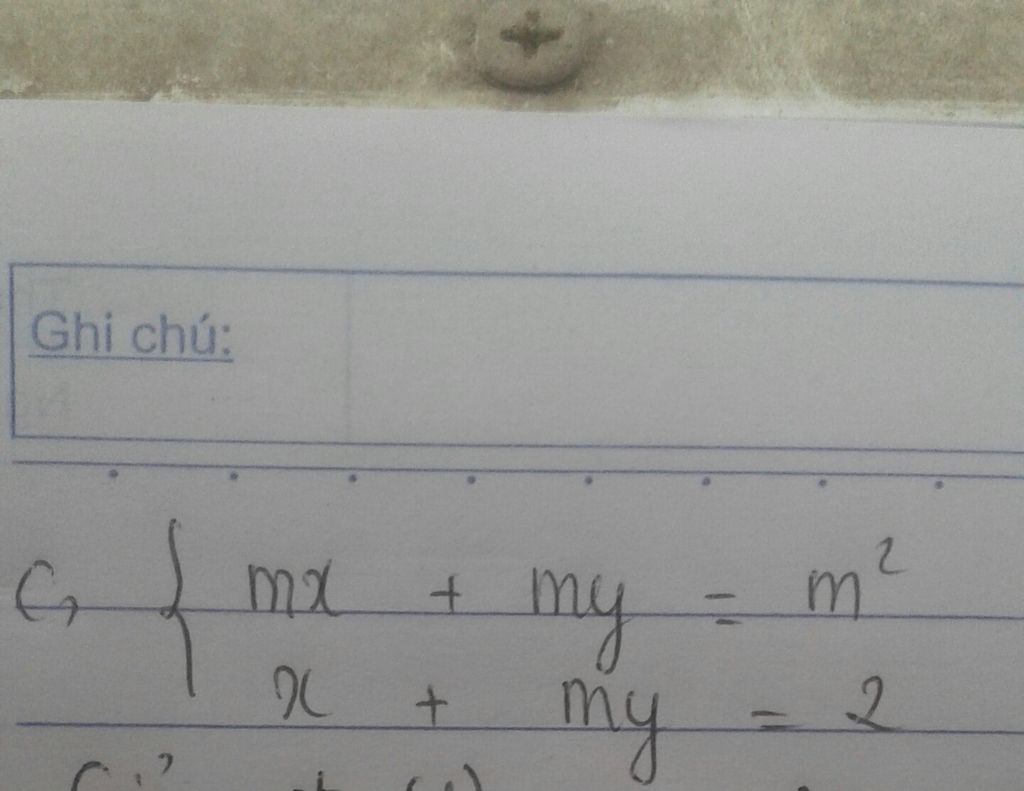 Ghi chú:
C, { mx + my = m²
x + my = 2